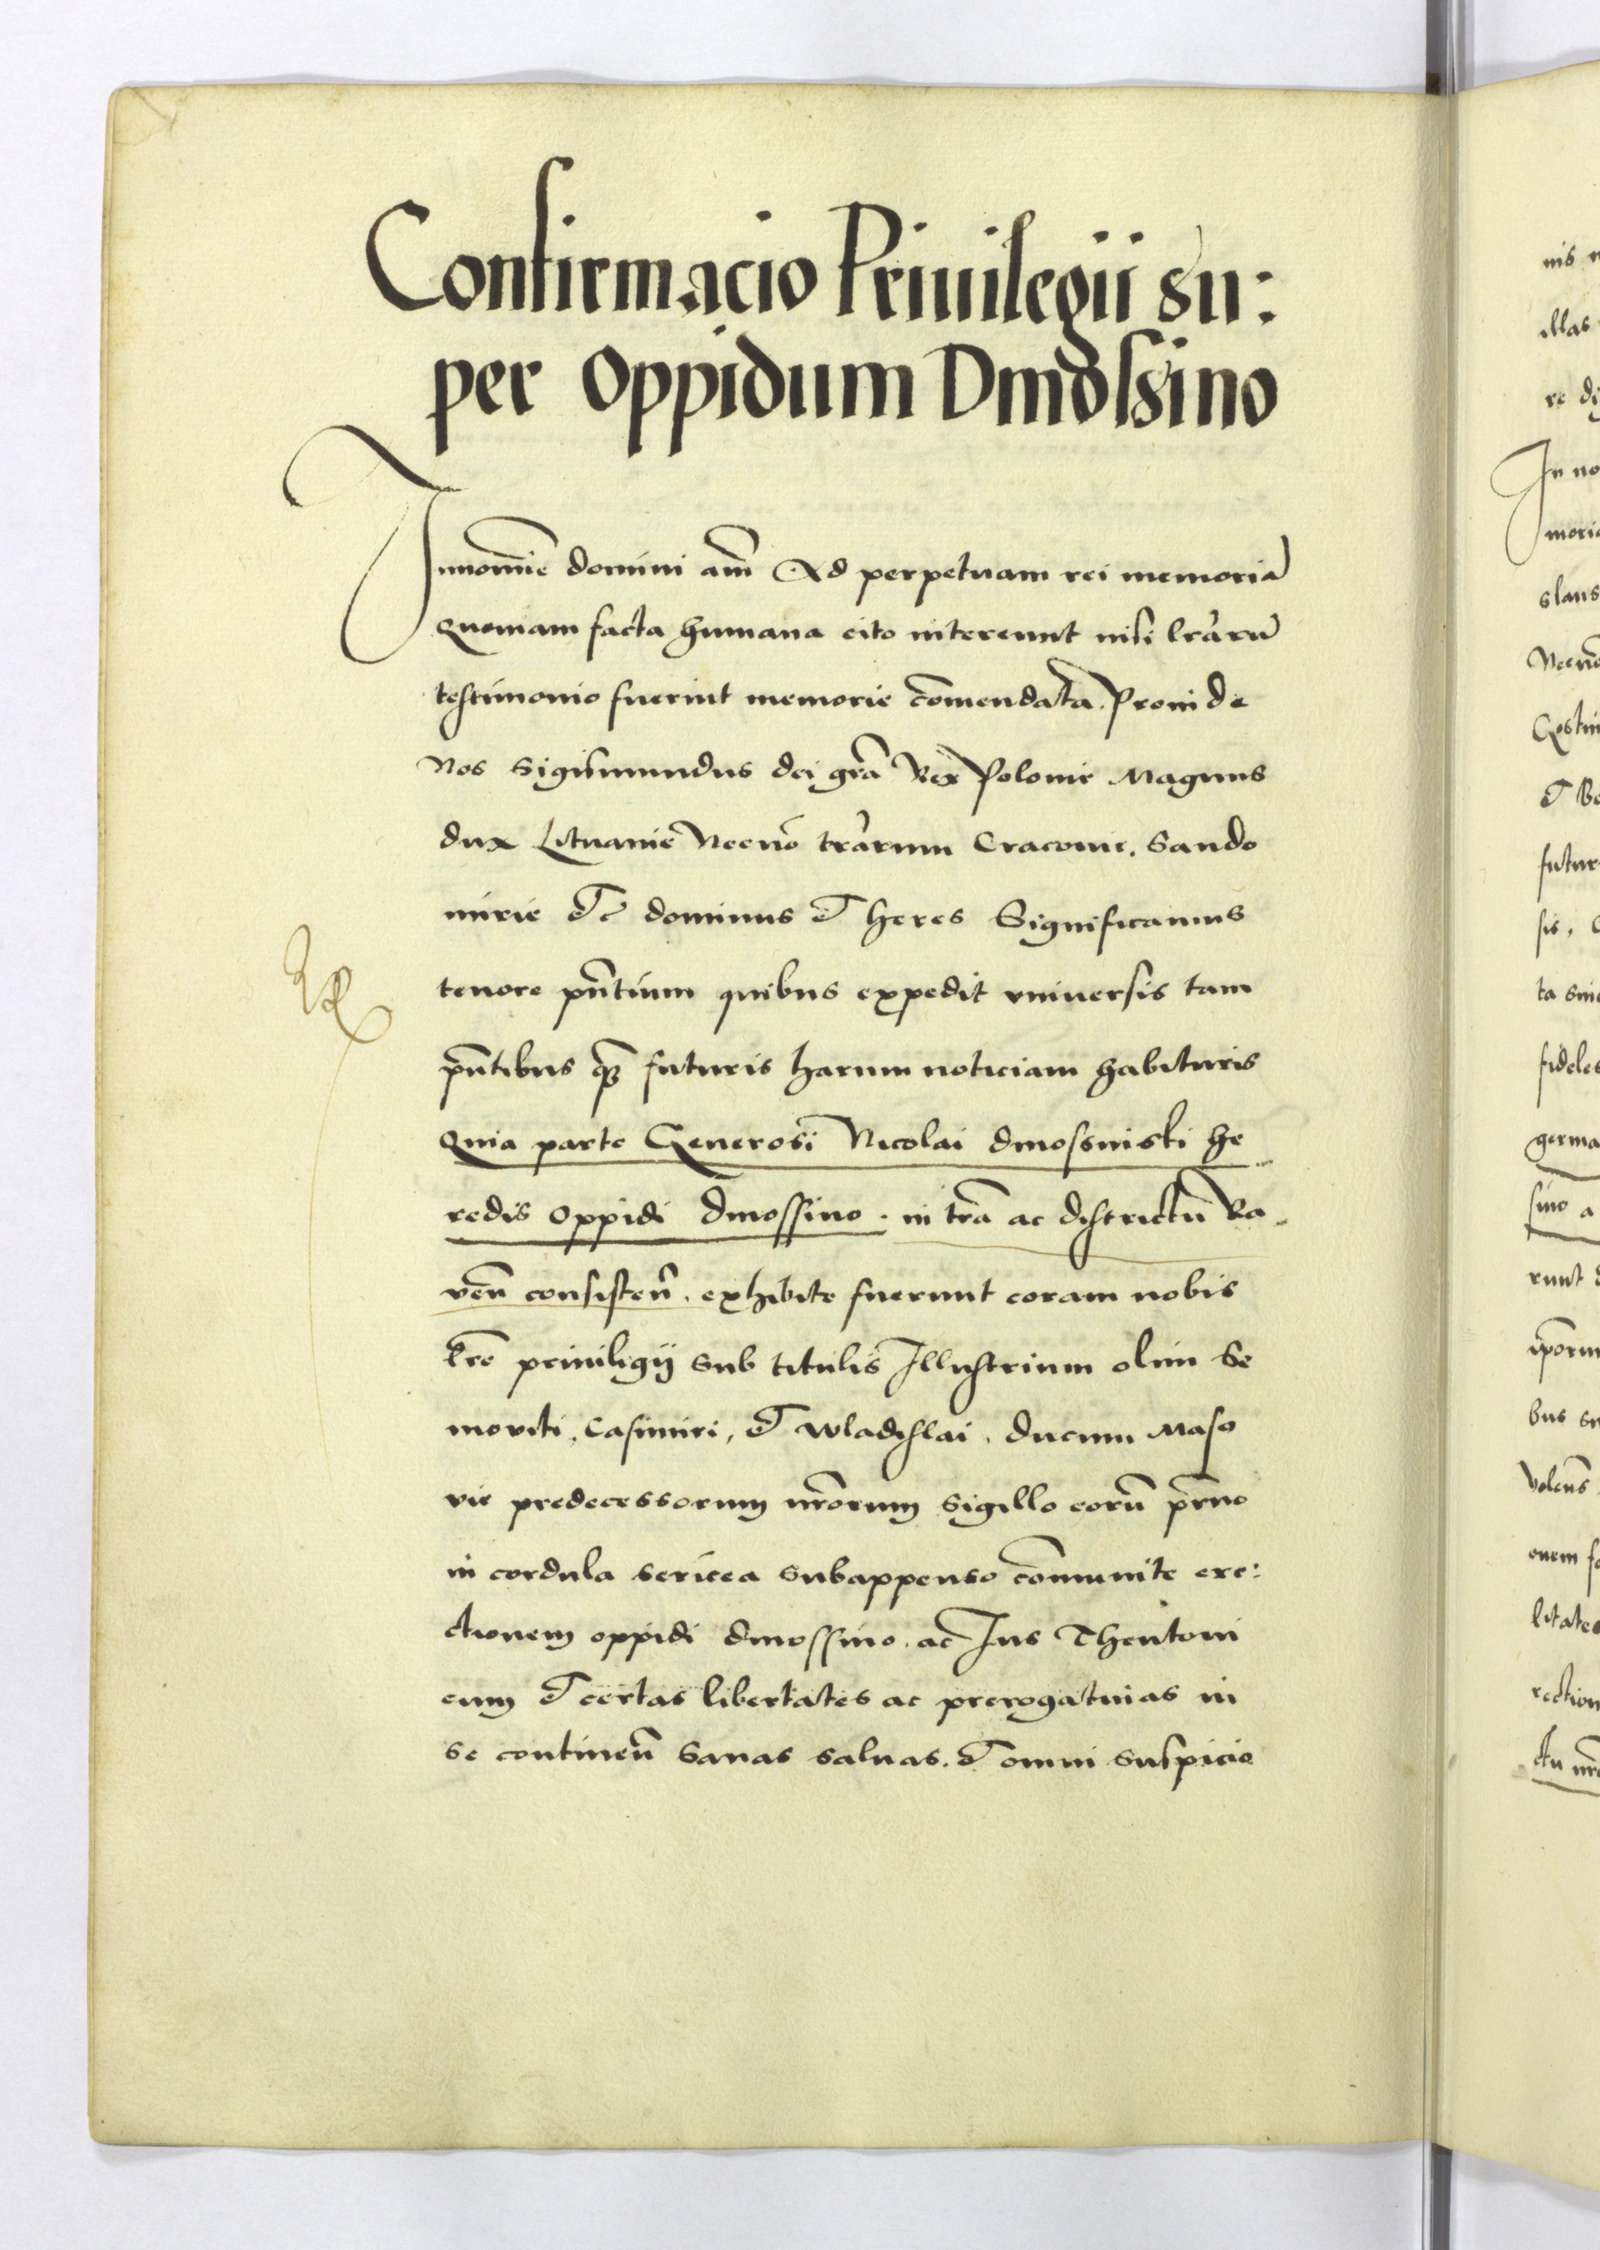 Confirmacio Priuilegii su:
per Oppidum Dmossino
Innomīe domini am̄ Ad perpetuam rei memoriā
Quoniam facta humana cito intereunt nisi lrārū
testimonio fuerint memorie com̄endata. Proinde
Nos Sigismundus dei grā Rex Polonie Magnus
dux Lituanie Necnō trārum Cracouie, Sando
mirie etc dominus et heres Significamus
tenore pn̄tium quibus expedit vniuersis tam
pn̄tibus qȝ futuris harum noticiam habituris
Quia parte Generosi Nicolai dmossniski he
redis oppidi dmossino. in trā ac districtū Ra
ven̄ consisten̄. exhibite fuerunt coram nobis
lrē priuiligij sub titulis Illustrium olim Se
moviti, Casimiri, et Wladislai, ducum Maso
vie predecessorum nr̄orum sigillo eorū
in cordula sericea subappenso com̄unite ere:
ctionem oppidi dmossino, ac Ius Theutoni
cum et certas libertates ac prerogatiuas in
se continen̄ Sanas saluas. et omni suspicio
nis
illas
re
In no
moria
slaus
Necnō
et
futur
sis,
ta
fideles
germa
sino a
runt
ip̄orum
bus
onem
litates
rection
ctu